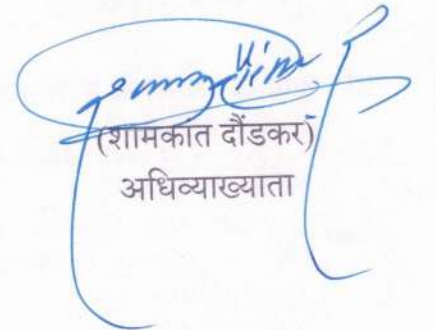 (शामकात दौंडकर)
अधिव्याख्याता